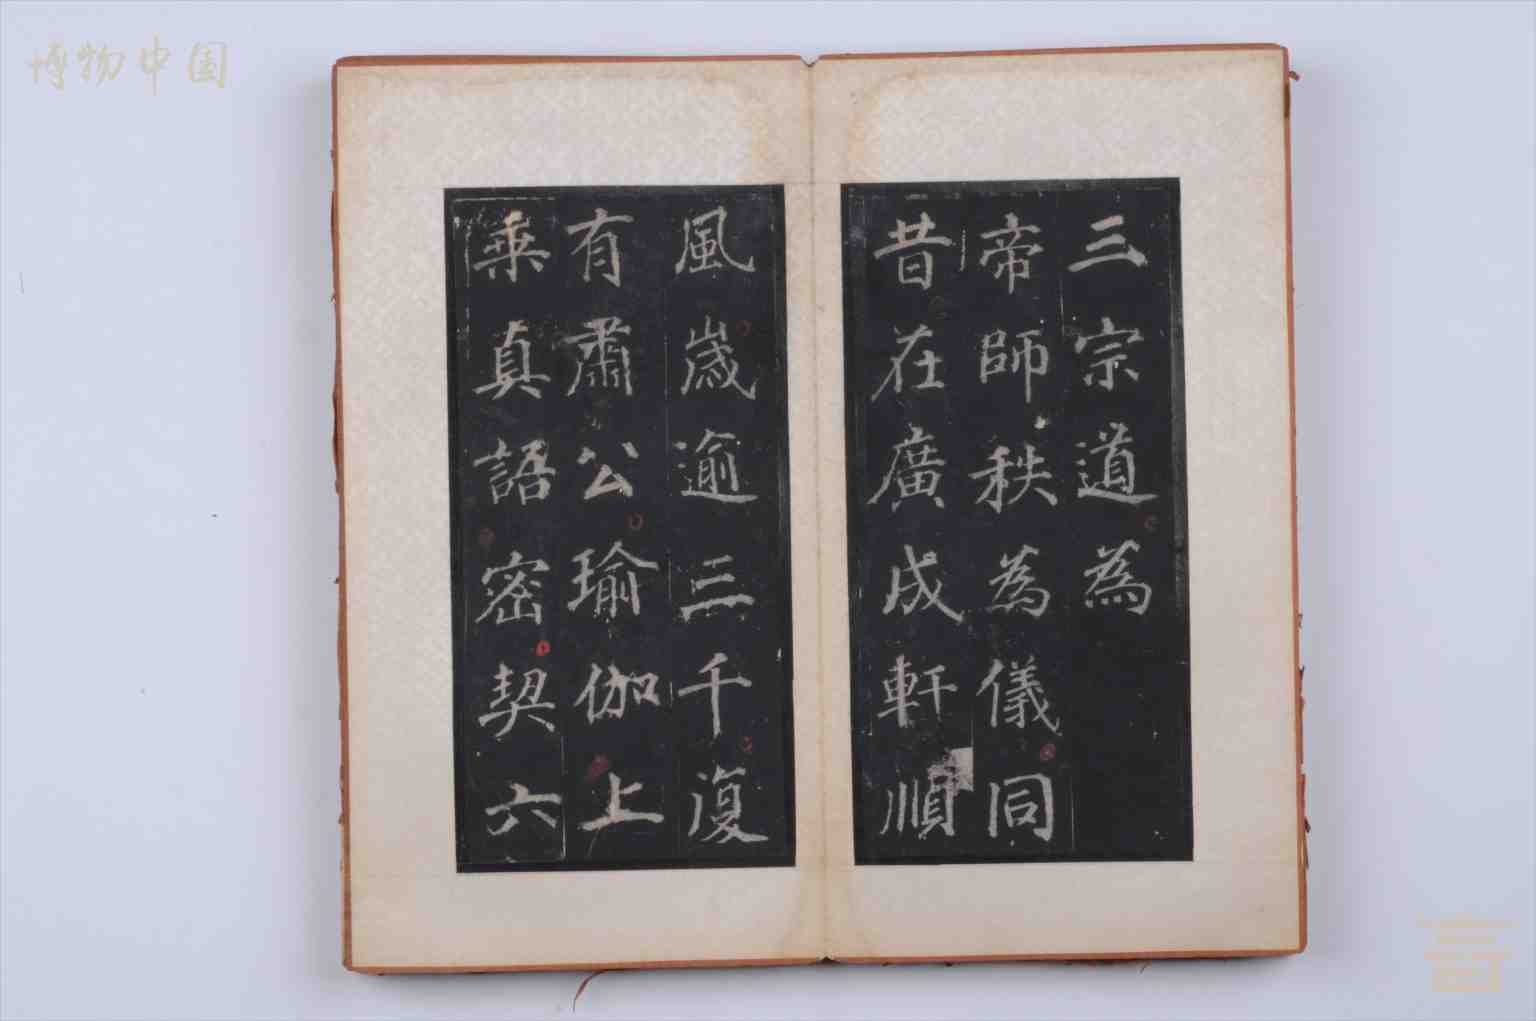 博物中国
三宗道為
帝師秩為儀同
昔在廣成軒順
風嵗逾三千復
有肅公瑜伽上
乗真語密契六